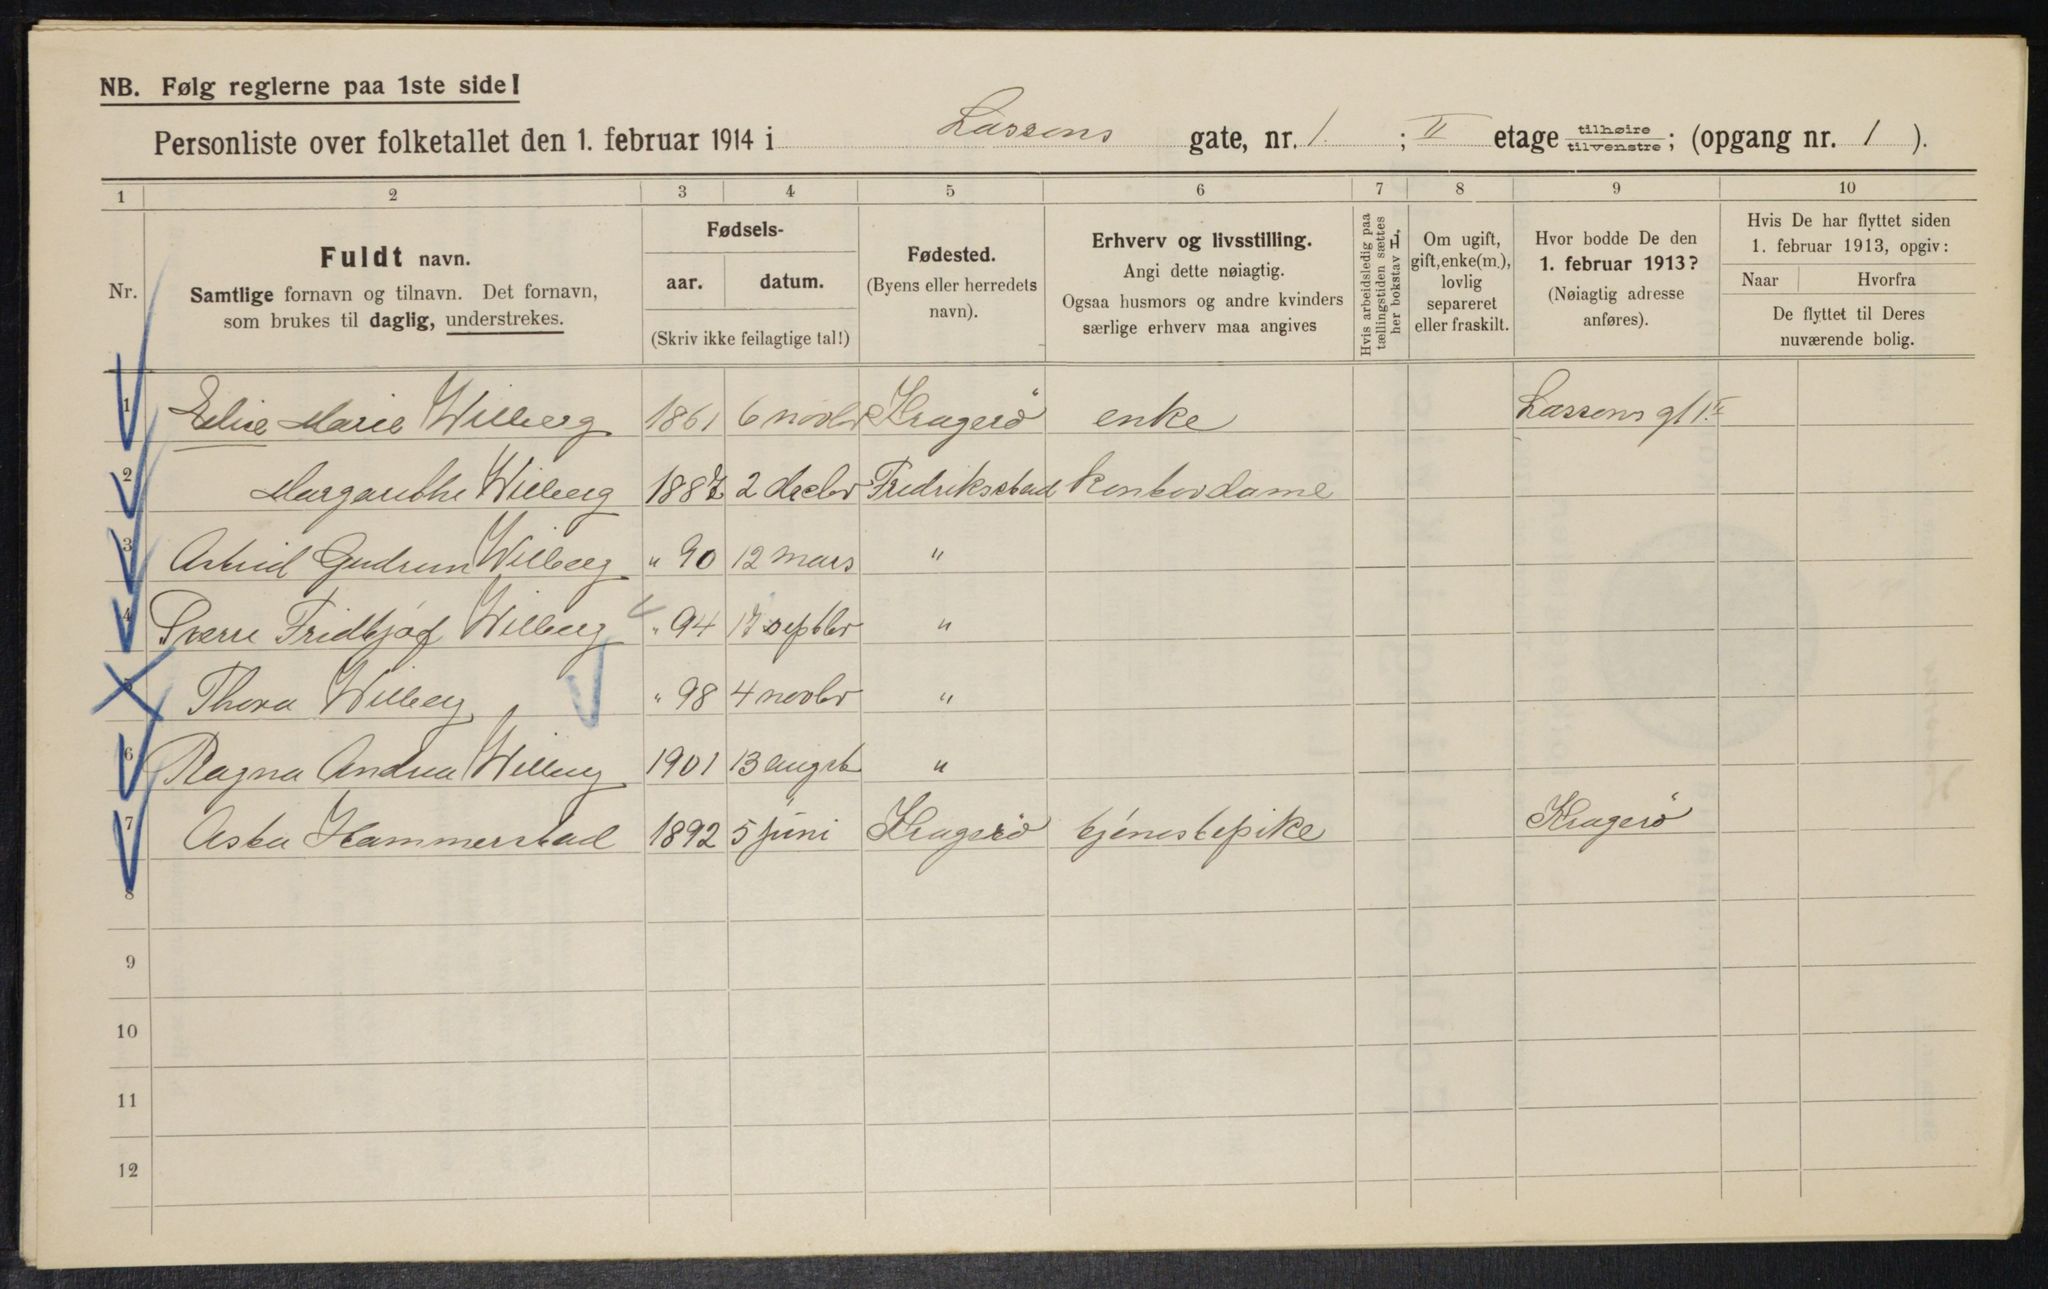 NB. Følg reglerne paa 1ste side!
Personliste over folketallet den 1. februar 1914 i Lassons gate, nr. 1. ; II etage tilhøire tilvenstre ; (opgang nr. 1 ).
1 2 3 4 5 6 7 8 9 10
Nr.
Fuldt navn.
Samtlige fornavn og tilnavn. Det fornavn,
som brukes til daglig, understrekes.
Fødsels-
aar. datum.
(Skriv ikke feilagtige tal!)
Fødested.
(Byens eller herredets
navn).
Erhverv og livsstilling.
Angi dette nøiagtig.
Ogsaa husmors og andre kvinders
særlige erhverv maa angives
Hvis arbeidsledig paa
tællingstiden sættes
her bokstav L.
Om ugift,
gift, enke(m.),
lovlig
separeret
eller fraskilt.
Hvor bodde De den
1. februar 1913?
(Nøiagtig adresse
anføres).
Hvis De har flyttet siden
1. februar 1913, opgiv:
Naar Hvorfra
De flyttet til Deres
nuværende bolig.
1 Elise Marie Wilberg 1861 6 novbr Kragerö enke Lassons gt 1 II
2 Margarethe Wilberg 1887 2 decbr Fredriksstad Kontordame
3 Astrid Gudrun Wilberg " 90 12 mars "
4 Sverre Fridtjof Wilberg " 94 17 septbr "
5 Thora Wilberg " 98 4 novbr "
6 Ragna Andrea Wilberg 1901 13 augst "
7 Asta Hammerstad 1892 5 juni Kragerö tjenestepike Kragerö
8
9
10
11
12